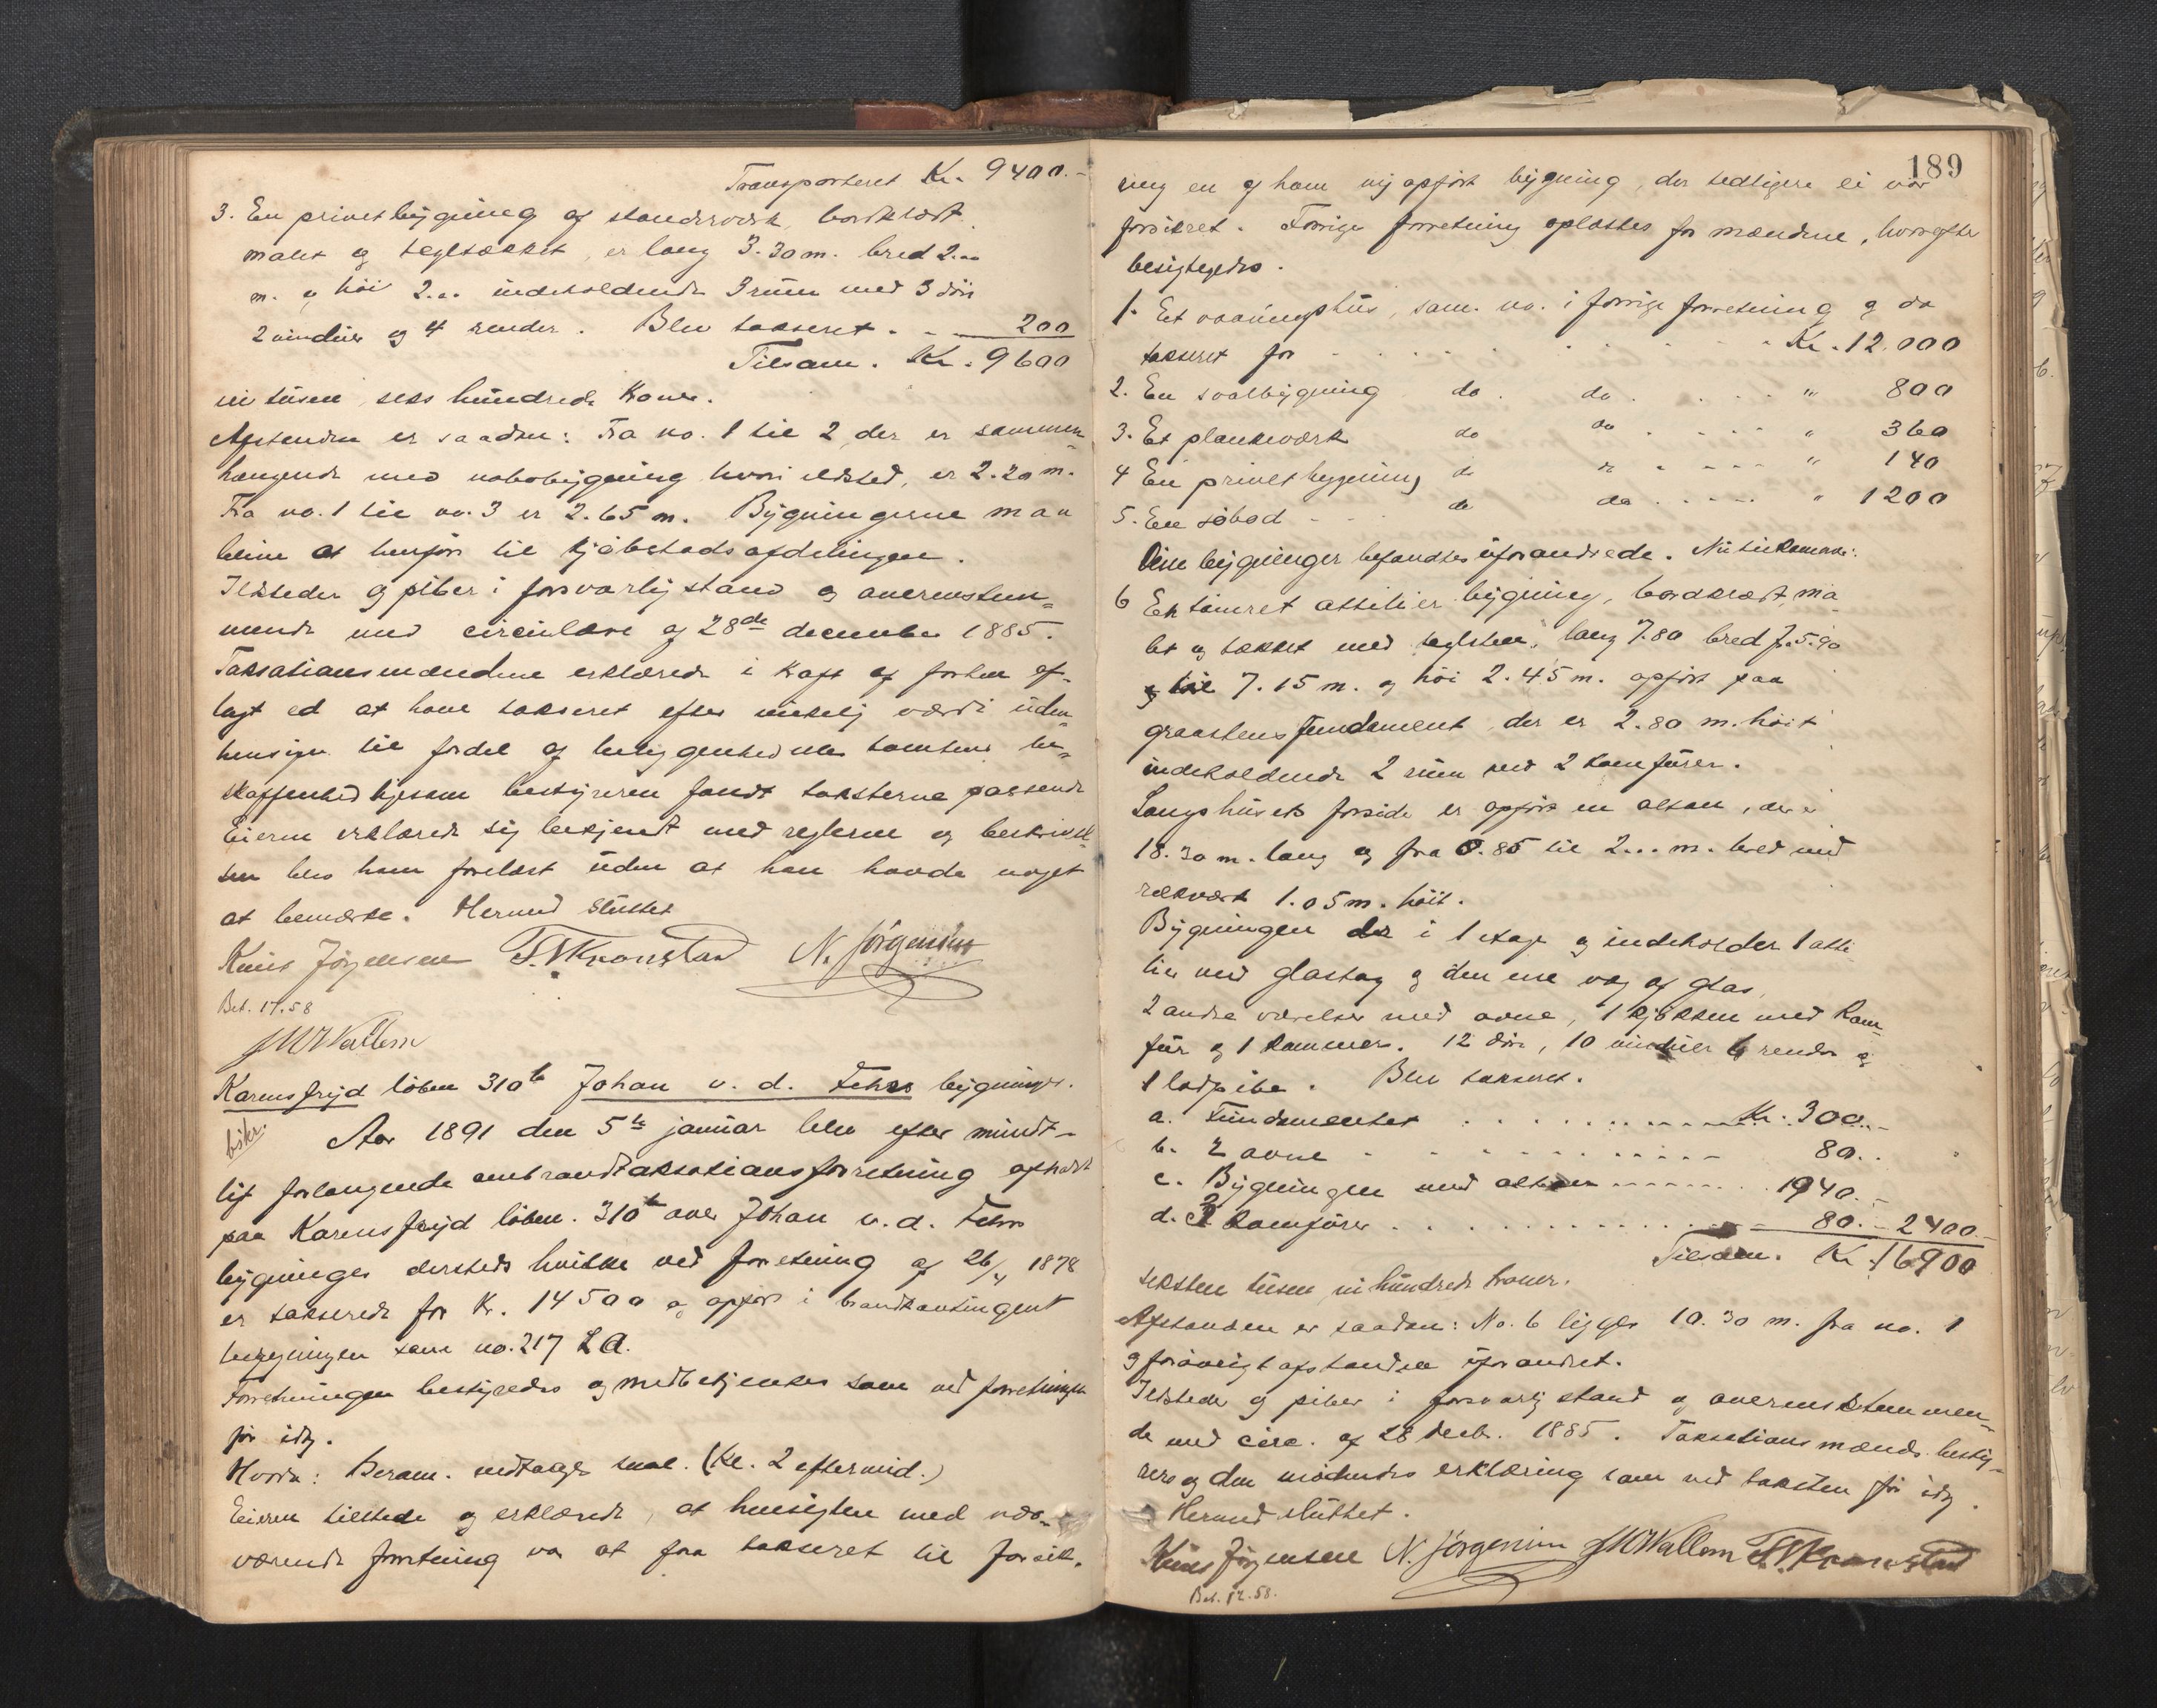 Transporteret Kr. 9400.-
3. En privetbygning af standerværk, bordklædt
malet og tegltækket, er lang 3.30 m. bred 2...
m. og høi 2... indeholdende 3 rum med 3 dør
2 vinduer og 4 render. Blev takseret . - 200
Tilsam. Kr. 9600
ni tusen, seks hundrede Kroner.
Afstanden er saadan: Fra no. 1 til 2, der er sammen-
hængende med nabobygning hvori ildsted, er 2.20 m.
Fra no. 1 til no. 3 er 2.65 m. Bygningerne maa
blive at henføre til kjøbstadsafdelingen.
Ildsteder og piber i forsvarlig stand og overenstem-
mende med circulære af 28de december 1885.
Taksationsmændene erklærede i kraft af forhen af-
lagt ed at have takseret efter virkelig værdi uden
hensyn til fordel af beliggenhed eller tomtens be-
skaffenhed ligesom bestyreren fandt taksterne passende
Eieren erklærede sig bekjendt med reglerne og beskrivel-
sen blev ham forelæst uden at han havde noget
at bemærke. Hermed sluttet
Knus Jørgensen T. Kronstad N. Jørgensen
Bet. 17.58
JMWallem
Karensfryd löben 310b Johan v. d. Fehrs bygninger.
bskr.
Aar 1891 den 5te januar blev efter mundt-
ligt forlangende ombrandtaksationsforretning afholdt
paa Karensfryd löben. 310b over Johan v. d. Fehrs
bygninger dersteds hvilke ved forretning af 26/4 1878
er takserede for Kr. 14500 og opført i brandkontingent
beregningen som no. 217 La.
Forretningen bestyredes og medbetjentes som ved forretningen
før idag.
Hvorda: Beram. modtages saal. (Kl. 2 eftermid.)
Eieren tilstede og erklærede, at hensigten med nær-
værende forretning var at faa takseret til forsik-
189
ring en af ham ny opført bygning, der tidligere ei var
forsikret. Forrige forretning oplæstes for mændene, hvorefter
besigtigedes.
1. Et vaaningshus, sam. no. i forrige forretning og da
takseret for . . . . Kr. 12.000
2. En svalbygning do. do. . . . " 800
3. Et plankeværk do do . . . " 360
4 En privetbygning do do . - - - " 140
5. En søbod - - do do . . . " 1200
Disse bygninger befandtes uforandrede. Nu tilkommer:
6 En tømret attelier bygning, bordklædt, ma-
let og tækket med teglsten, lang 7.80 bred f. 5.90
til 7.15 m. og høi 2.45 m. opført paa
graastens fundament, der er 2.80 m. høit
indeholdende 2 rum med 2 komfurer.
Langs husets forside er opført en altan, der er
18.30 m. lang og fra 0.85 til 2... m. bred med
rækværk 1.05 m. høit.
Bygningen er i 1 etage og indeholder 1 atte-
lier med glastag og den ene væg af glas,
2 andre værelser med ovne, 1 kjøkken med kom-
fur og 1 kammer. 12 dør, 10 vinduer 6 render og
1 lodpibe. Blev takseret.
a. Fundamentet . . . . Kr. 300.-
b. 2 ovne - . . . . 80..
c. Bygningen med altan . . . 1940.-
d. 2 Komfurer . . . . 80.- 2400.-
Tilsam. Kr. 16900
seksten tusen ni hundrede kroner.
Afstanden er saadan: No. 6 ligger 10.30 m. fra no. 1
og forøvrigt afstanden uforandret.
Ildsteder og piber i forsvarlig stand og overenstemmen-
de med circ. af 28 decb. 1885. Taksationsmænds besty-
rers og den mødendes erklæring som ved taksten før idag.
Hermed sluttet.
Knus Jørgensen N. Jørgensen JMWallem T. Kronstad
Bet. 17.58.